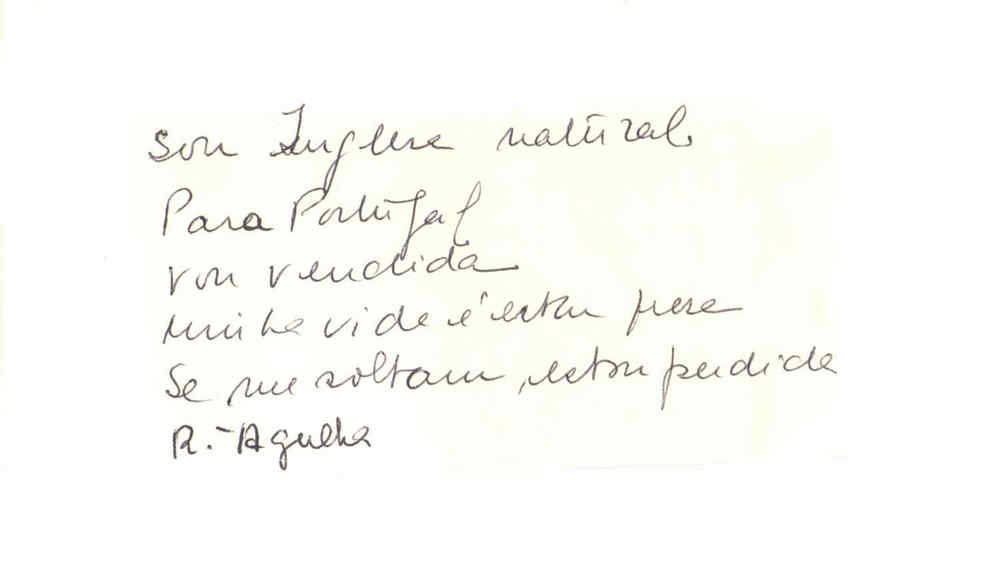 sou Inglesa natural
Para Portugal
vou vendida
minha vida é estar presa
Se me soltam, estou perdida
R.- Agulha